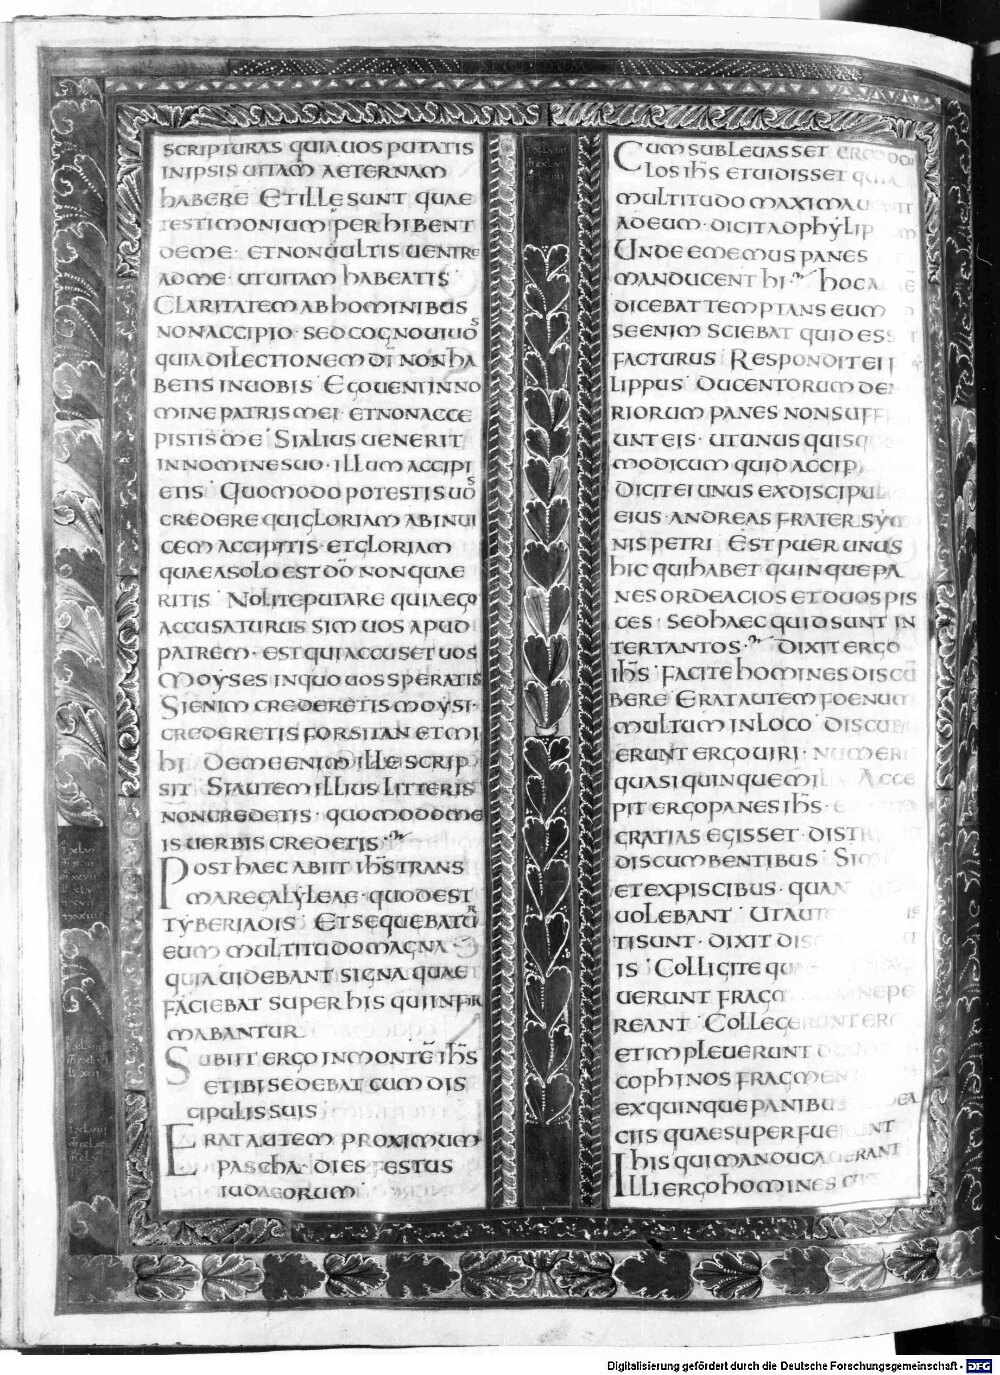 SCRIPTURAS QUIA UOS PUTATIS
IN IPSIS UITAM AETERNAM
hABERE ET ILLE SUNT QUAE
TESTIMONIUM PERhIBENT
DE ME · ET NON UULTIS UENIRE
AD ME · UT UITAM hABEATIS ·
CLARITATEM AB hOMINIBUS
NON ACCIPIO · SED COGNOUI UOS
QUIA DILECTIONEM DĪ NON hA
BETIS IN UOBIS · EGO UENI IN NO
MINE PATRIS MEI · ET NON ACCE
PISTIS ME · SI ALIUS UENERIT
IN NOMINE SUO · ILLUM ACCIPI
ETIS · QUOMODO POTESTIS UOS
CREDERE QUI GLORIAM AB INUI
CEM ACCIPITIS · ET GLORIAM
QUAE A SOLO EST DŌ NON QUAE
RITIS · NOLITE PUTARE QUIA EGO
ACCUSATURUS SIM UOS APUD
PATREM · EST QUI ACCUSET UOS
MOYSES IN QUO UOS SPERATIS
SI ENIM CREDERETIS MOYSI ·
CREDERETIS FORSITAN ET MI
hI · DE ME ENIM ILLE SCRIP
SIT · SI AUTEM ILLIUS LITTERIS
NON CREDETIS · QUOMODO ME
IS UERBIS CREDETIS ·
POST hAEC ABIIT IhS TRANS
MARE GALYLEAE · QUOD EST
TYBERIADIS · ET SEQUEBATUR
EUM MULTITUDO MAGNA
QUIA UIDEBANT SIGNA QUAE
FACIEBAT SUPER hIS QUI INFIR
MABANTUR
SUBIIT ERGO IN MONTĒ IhS
ET IBI SEDEBAT CUM DIS
CIPULIS SUIS
ERAT AUTEM PROXIMUM
PASChA · DIES FESTUS
IUDAEORUM ·
CUM SUBLEUASSET ERGO OCU
LOS IhS ET UIDISSET QUIA
MULTITUDO MAXIMA
AD EUM · DICIT AD PhYLIP
UNDE EMEMUS PANES
MANDUCENT hI · hOC A
DICEBAT TEMPTANS EUM
SE ENIM SCIEBAT QUID ESS
FACTURUS · RESPONDIT EI
LIPPUS · DUCENTORUM DE
RIORUM PANES NON SUFFI
UNT EIS · UT UNUS QUISQ
MODICUM QUID ACCIP
DICIT EI UNUS EX DISCIPUL
EIUS · ANDREAS FRATER SYM
NIS PETRI · EST PUER UNUS
hIC QUI hABET QUINQUE PA
NES ORDEACIOS ET DUOS PIS
CES · SED hAEC QUID SUNT IN
TER TANTOS · DIXIT ERGO
IhS · FACITE hOMINES DISCŪ
BERE · ERAT AUTEM FOENUM
MULTUM IN LOCO · DISCUBU
ERUNT ERGO UIRI · NUMERO
QUASI QUINQUE MILIA · ACCE
PIT ERGO PANES IhS ·
GRATIAS EGISSET · DISTR
DISCUMBENTIBUS · SIMI
ET EX PISCIBUS · QUAN
UOLEBANT · UT AUTE
TI SUNT · DIXIT DIS
IS · COLLIGITE QU
UERUNT FRAGM NE PE
REANT · COLLEGERUNT ERG
ET IMPLEUERUNT
COPhINOS FRAGMEN
EX QUINQUE PANIBUS DEA
CIIS QUAE SUPERFUERUNT
hIS QUI MANDUCAUERANT
ILLI ERGO hOMINES
Digitalisierung gefördert durch die Deutsche Forschungsgemeinschaft - DFG